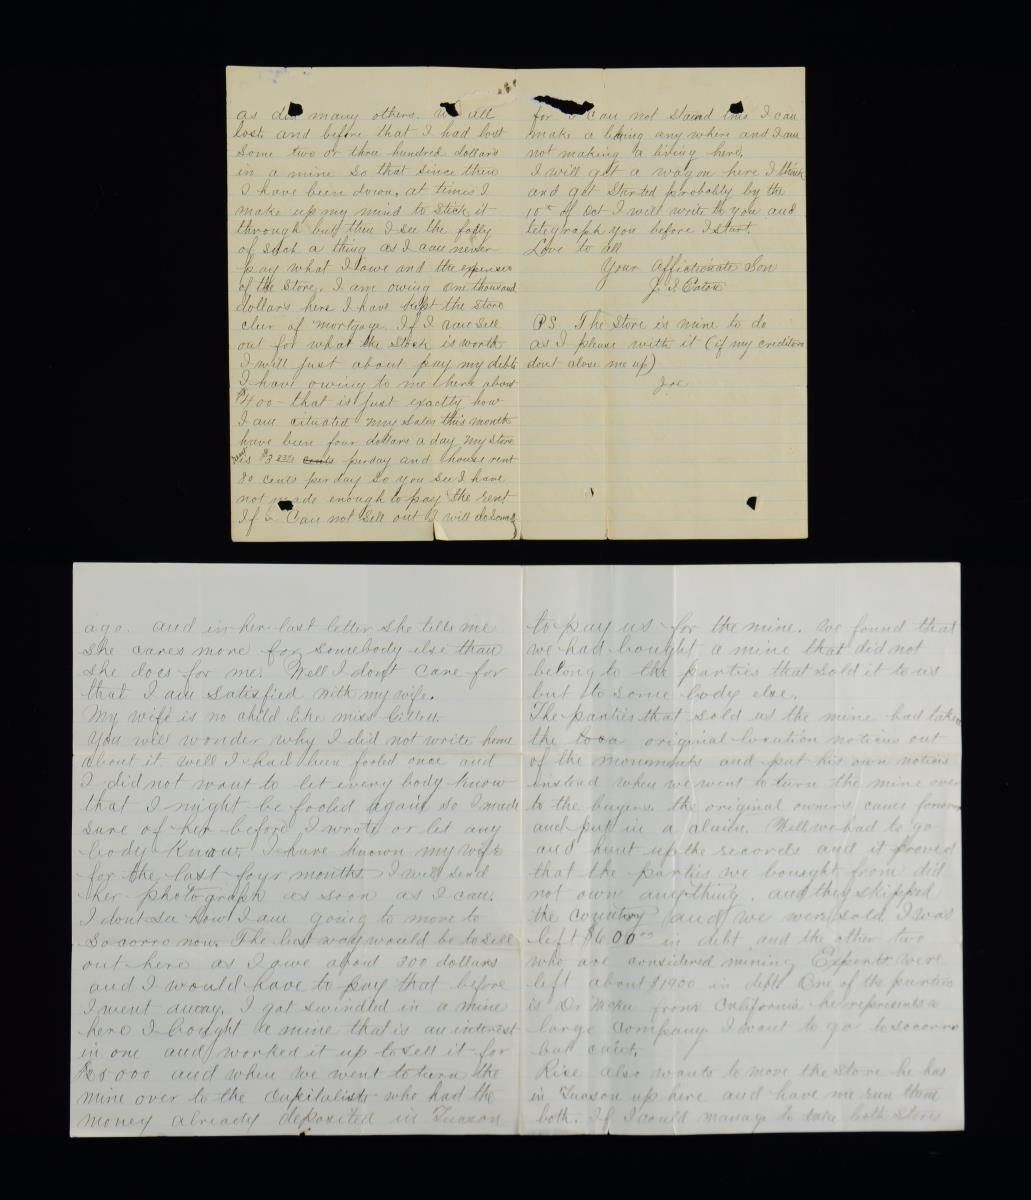 as did many others. We all
lost. and before that I had lost
some two or three hundred dollars
in a mine so that since then
I have been down, at times I
make up my mind to stick it
through but then I see the folly
of such a thing as I can never
pay what I owe and the expenses
of the store. I am owing one thousand
dollars here I have kept the store
clear of mortgage. If I can sell
out for what the stock is worth
I will just about pay my debts
I have owing to me here about
$400 - that is just exactly how
I am cituated my sales this month
have been four dollars a day my store
rent is $3 33⅓ cents perday and house rent
80 cents per day so you see I have
not made enough to pay the rent
If I can not sell out I will do some
for I can not stand this I can
make a living any where and I am
not making a living here.
I will get a wagon here I think
and get started probably by the
10th of Oct I will write to you and
telegraph you before I start.
Love to all
Your Affictionate Son
J. S. Eaton
PS The store is mine to do
as I please with it (if my creditors
dont close me up)
Joe
ago. and in her last letter she tells me
she cares more for somebody else than
she does for me. Well I dont care for
that I am satisfied with my wife.
My wife is no child like miss
You will wonder why I did not write home
about it well I had been fooled once and
I did not want to let every body know
that I might be fooled again so I made
sure of her before I wrote or let any
body know. I have known my wife
for the last four months I will send
her photograph as soon as I can.
I dont see how I am going to move to
Socorro now. The best way would be to sell
out here as I owe about 300 dollars
and I would have to pay that before
I went away. I got swindled in a mine
here I bought a mine that is an interest
in one and worked it up to sell it for
and when we went to turn the
mine over to the capitalists who had the
money already deposited in Tucson
to pay us for the mine. We found that
we had bought a mine that did not
belong to the parties that sold it to us
but to some body else.
The parties that sold us the mine had taken
the original location notices out
of the monuments and put his own notices
instead when we went to turn the mine over
to the buyers. the original owners came forward
and put in a claim. Well we had to go
and hunt up the records and it proved
that the parties we bought from did
not own anything. and they skipped
the country and we were sold I was
left $600 00 in debt and the other two
who are considered mining Experts were
left about $1900 in debt One of the parties
is Dr McKee from California he represents a
large company I want to go to Socorro
but cant.
Rice also wants to move the store he has
in Tucson up here and have me run them
both. If I could manage to take both stores